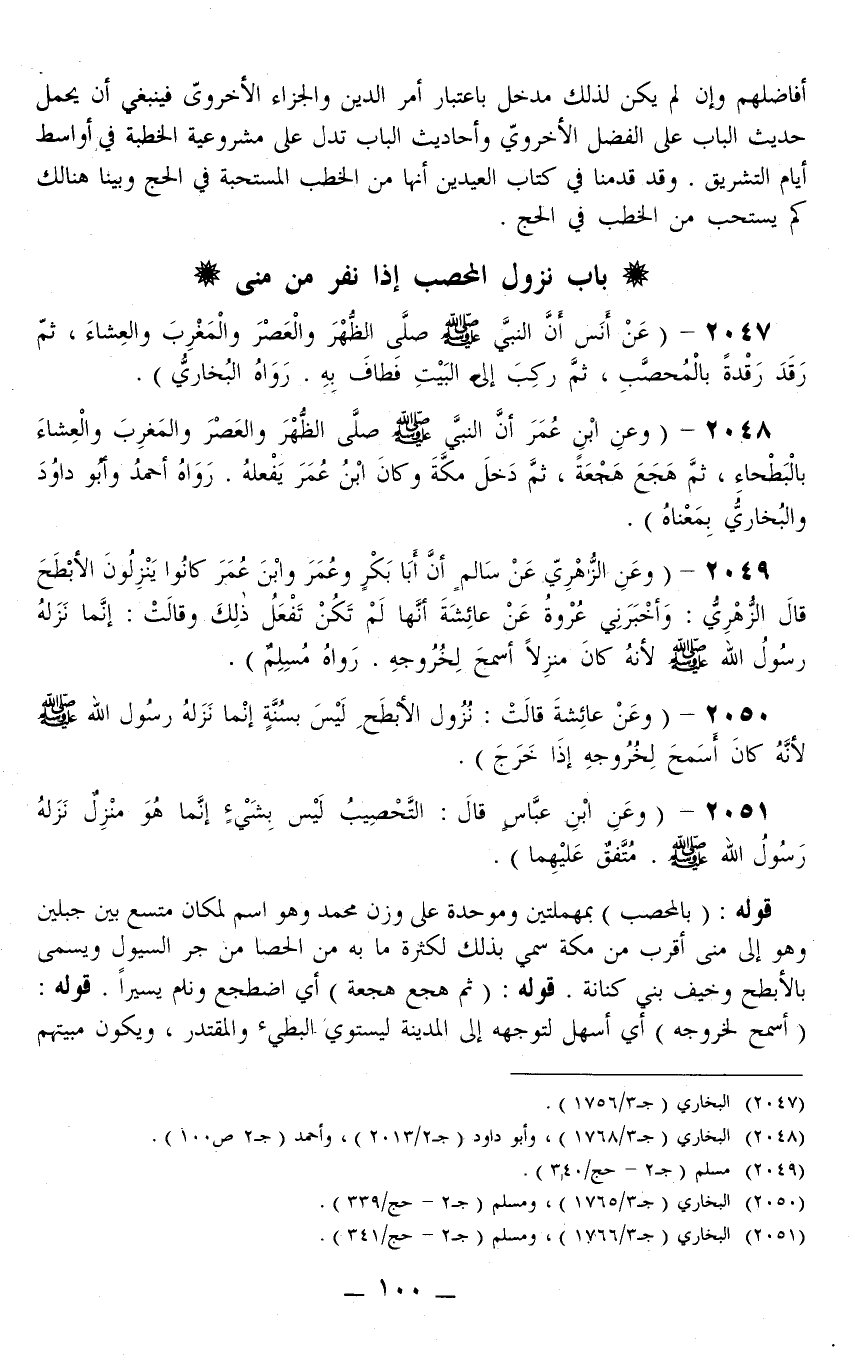 أفاضلهم وإن لم يكن لذلك مدخل باعتبار أمر الدين والجزاء الأخرويّ فينبغي أن يحمل
حديث الباب على الفضل الأخرويّ وأحاديث الباب تدل على مشروعية الخطبة في أواسط
أيام التشريق . وقد قدمنا في كتاب العيدين أنها من الخطب المستحبة في الحج وبينا هنالك
كم يستحب من الخطب في الحج .
❋ باب نزول المحصب إذا نفر من منى ❋
٢٠٤٧ – ( عَنْ أَنَس أَنَّ النبيَّ ﷺ صلَّى الظُّهْرَ والْعَصْرَ والْمَغْرِبَ والعِشاءَ ، ثمّ
رَقَدَ رَقْدةً بالْمُحصَّبِ ، ثمَّ ركِبَ إلى البَيْتِ فَطافَ بِهِ . رَوَاهُ البُخاريُّ ) .
٢٠٤٨ – ( وعنِ ابْنِ عُمَرَ أنَّ النبيَّ ﷺ صلَّى الظُّهْرَ والعَصْرَ والمَغرِبَ والْعِشاءَ
بالْبَطْحاءِ ، ثمَّ هَجَعَ هَجْعَةً ، ثمَّ دَخلَ مكَّةَ وكانَ ابْنُ عُمَرَ يَفْعلهُ . رَوَاهُ أحمدُ وأبُو داوُدَ
والبُخاريُّ بِمَعْناهُ ) .
٢٠٤٩ – ( وعَنِ الزُّهْرِيّ عَنْ سَالمٍ أنَّ أَبَا بَكْرٍ وعُمَرَ وابْنَ عُمَرَ كانُوا يَنْزِلُونَ الأبْطَحَ
قالَ الزُّهْرِيُّ : وَأخْبَرَنِي عُرْوةُ عَنْ عائِشةَ أنَّها لَمْ تَكُنْ تَفْعَلُ ذٰلِكَ وقالَتْ : إنَّما نَزَلهُ
رسُولُ الله ﷺ لأنهُ كانَ منزِلاً أسمحَ لِخُروجهِ . رَواهُ مُسلِمٌ ) .
٢٠٥٠ – ( وعَنْ عائِشةَ قالَتْ : نُزُول الأبْطَحِ لَيْسَ بسُنَّةٍ إنْما نَزَلهُ رسُول الله ﷺ
لأنَّهُ كانَ أَسَمحَ لِخُرُوجهِ إذَا خَرَجَ ) .
٢٠٥١ – ( وعَنِ ابْنِ عبَّاسٍ قالَ : التَّحْصِيبُ لَيْس بِشَيْءٍ إنَّما هُوَ منْزِلٌ نَزَلهُ
رَسُولُ الله ﷺ . مُتَّفقٌ عَليْهِما ) .
قوله : ( بالمحصب ) بمهملتين وموحدة على وزن محمد وهو اسم لمكان متسع بين جبلين
وهو إلى منى أقرب من مكة سمي بذلك لكثرة ما به من الحصا من جر السيول ويسمى
بالأبطح وخيف بني كنانة . قوله : ( ثم هجع هجعة ) أي اضطجع ونام يسيراً . قوله :
( أسمح لخروجه ) أي أسهل لتوجهه إلى المدينة ليستوي البطيء والمقتدر ، ويكون مبيتهم
(٢٠٤٧) البخاري ( جـ٣/١٧٥٦ ) .
(٢٠٤٨) البخاري ( جـ٣/١٧٦٨ ) ، وأبو داود ( جـ٢/٢٠١٣ ) ، وأحمد ( جـ٢ ص١٠٠ ) .
(٢٠٤٩) مسلم ( جـ٢ – حج/٣٤٠ ) .
(٢٠٥٠) البخاري ( جـ٣/١٧٦٥ ) ، ومسلم ( جـ٢ – حج/٣٣٩ ) .
(٢٠٥١) البخاري ( جـ٣/١٧٦٦ ) ، ومسلم ( جـ٢ – حج/٣٤١ ) .
– ١٠٠ –